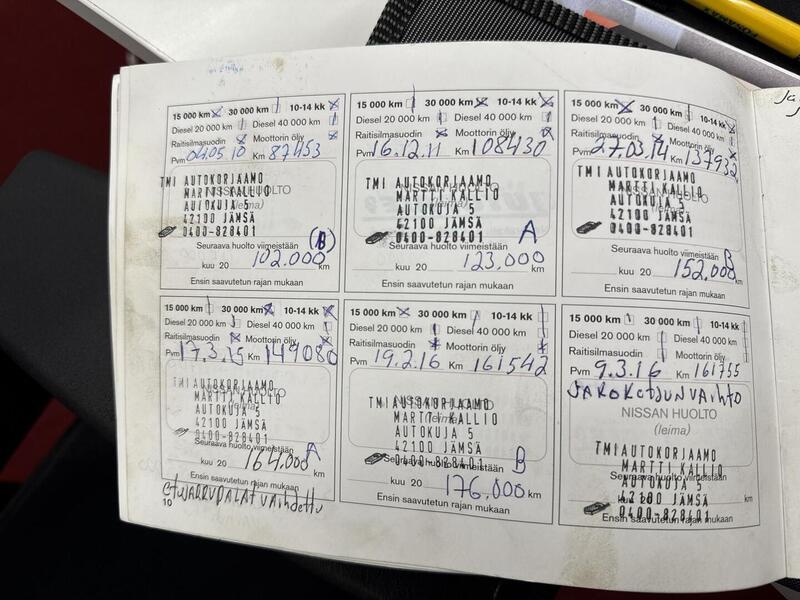 15 000 km 30 000 km 10-14 kk
Diesel 20 000 km Diesel 40 000 km
Raitisilmasuodin Moottorin öljy
Pvm 04.05.10 Km 87453
NISSAN HUOLTO
(leima)
TMI AUTOKORJAAMO
MARTTI KALLIO
AUTOKUJA 5
42100 JÄMSÄ
0400-828401
Seuraava huolto viimeistään (B)
kuu 20 102.000 km
Ensin saavutetun rajan mukaan
15 000 km 30 000 km 10-14 kk
Diesel 20 000 km Diesel 40 000 km
Raitisilmasuodin Moottorin öljy
Pvm 16.12.11 Km 108430
NISSAN HUOLTO
(leima)
TMI AUTOKORJAAMO
MARTTI KALLIO
AUTOKUJA 5
42100 JÄMSÄ
0400-828401
Seuraava huolto viimeistään A
kuu 20 123.000 km
Ensin saavutetun rajan mukaan
15 000 km 30 000 km 10-14 kk
Diesel 20 000 km Diesel 40 000 km
Raitisilmasuodin Moottorin öljy
Pvm 27.03.14 Km 137932
NISSAN HUOLTO
(leima)
TMI AUTOKORJAAMO
MARTTI KALLIO
AUTOKUJA 5
42100 JÄMSÄ
0400-828401
Seuraava huolto viimeistään B
kuu 20 152.000 km
Ensin saavutetun rajan mukaan
15 000 km 30 000 km 10-14 kk
Diesel 20 000 km Diesel 40 000 km
Raitisilmasuodin Moottorin öljy
Pvm 17.3.15 Km 149080
NISSAN HUOLTO
(leima)
TMI AUTOKORJAAMO
MARTTI KALLIO
AUTOKUJA 5
42100 JÄMSÄ
0400-828401
Seuraava huolto viimeistään A
kuu 20 164.000 km
Ensin saavutetun rajan mukaan
etujarrupalat vaihdettu
15 000 km 30 000 km 10-14 kk
Diesel 20 000 km Diesel 40 000 km
Raitisilmasuodin Moottorin öljy
Pvm 19.2.16 Km 161542
NISSAN HUOLTO
(leima)
TMI AUTOKORJAAMO
MARTTI KALLIO
AUTOKUJA 5
42100 JÄMSÄ
0400-828401
Seuraava huolto viimeistään B
kuu 20 176.000 km
Ensin saavutetun rajan mukaan
15 000 km 30 000 km 10-14 kk
Diesel 20 000 km Diesel 40 000 km
Raitisilmasuodin Moottorin öljy
Pvm 9.3.16 Km 161755
JAKOKETJUN VAIHTO
NISSAN HUOLTO
(leima)
TMI AUTOKORJAAMO
MARTTI KALLIO
Seuraava huolto viimeistään
AUTOKUJA 5
kuu 20 km
42100 JÄMSÄ
0400-828401
Ensin saavutetun rajan mukaan
10